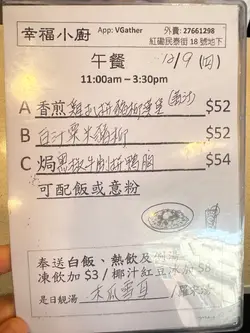 幸福小廚 App: VGather 外賣: 27661298
紅磡民泰街18號地下
午餐 12/9 (四)
11:00am - 3:30pm
A 香煎雞扒拼豬柳 $52
B 白汁粟米豬柳 $52
C 焗黑椒牛 拼鴨胸 $54
可配飯或意粉
奉送白飯、熱飲及
凍飲加 $3 / 椰汁紅豆冰加 $8
是日靚湯 木瓜雪耳